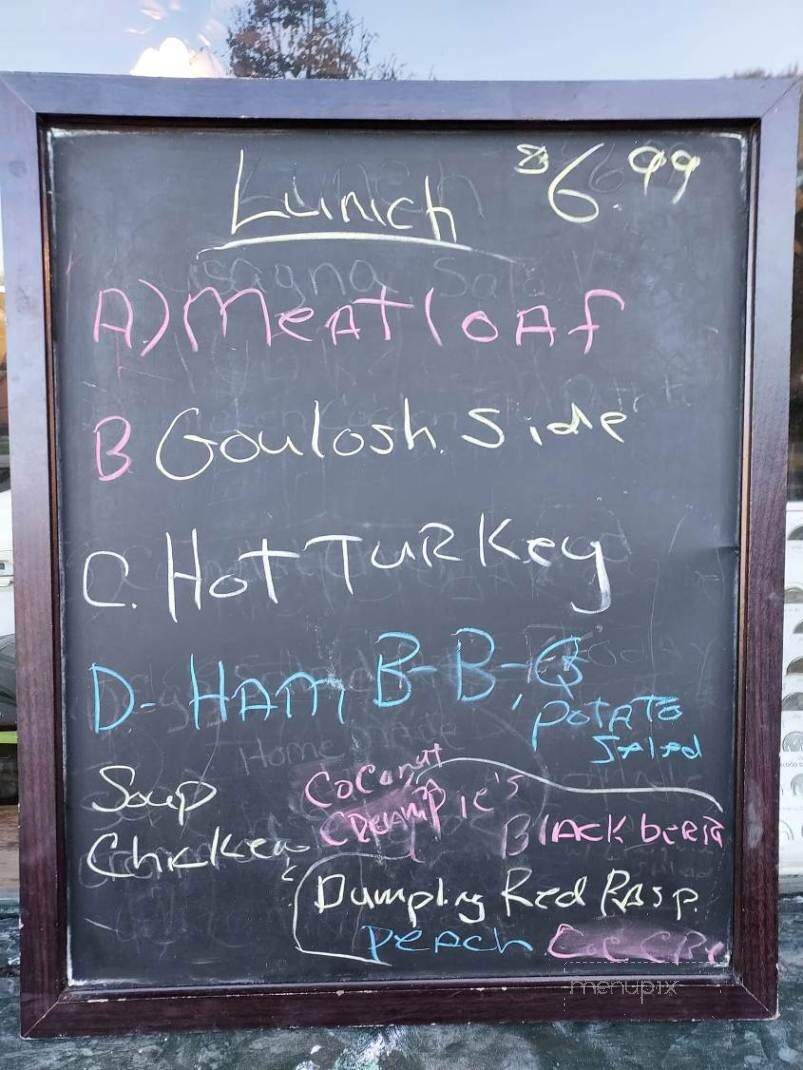 Lunch $6.99
A) Meatloaf
B Goulosh. Side
C. Hot Turkey
D- Ham B-B-Q
Potato
Salad
Soup
Chicken
Coconut
Cream Pie's
Blackberry
Dumpling Red Rasp.
Peach
menupix